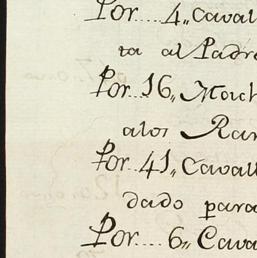 Por.... 4,, Cavall
ta al Padre
Por. 16,, Mach
alos Ran
Por. 41,, Cavall
dado para
Por.... 6,, Cava